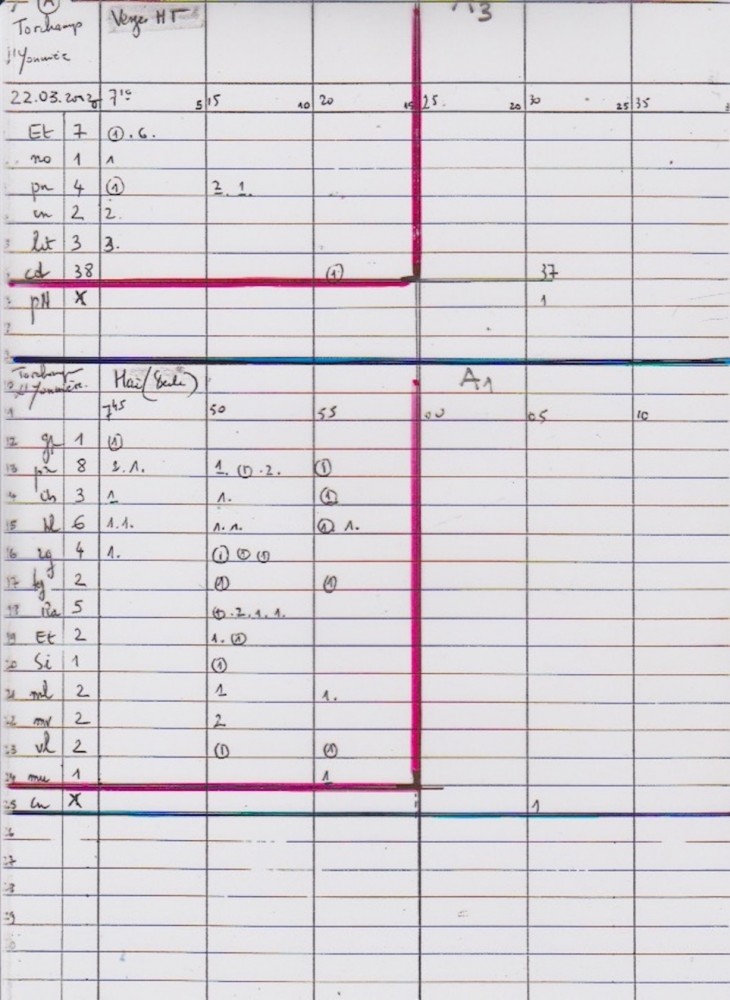 A
Torchamp Verger HT A3
l'Yonnière
22.03.2012 7 10 5 15 10 20 15 25 20 30 25 35
Et 7 ① . 6.
no 1 1
pn 4 ① 2 . 1.
cn 2 2.
lit 3 3.
cd 38 ① 37
pN X 1
Torchamp Haie (Belle) A1
l'Yonnière
7 45 50 55 00 05 10
12 gr 1 ①
13 pr 8 2.1. 1. ① .2. ①
14 ch 3 1 1. ①
15 bl 6 1.1. 1.1. ① 1.
16 rg 4 1. ① ① ①
17 tg 2 ① ①
18 Ra 5 ① . 2 . 1 . 1 .
19 Et 2 1. ①
20 Si 1 ①
21 ml 2 1 1.
22 mv 2 2
23 vl 2 ① ①
24 mu 1 1
25 cn X 1
26
27
28
29